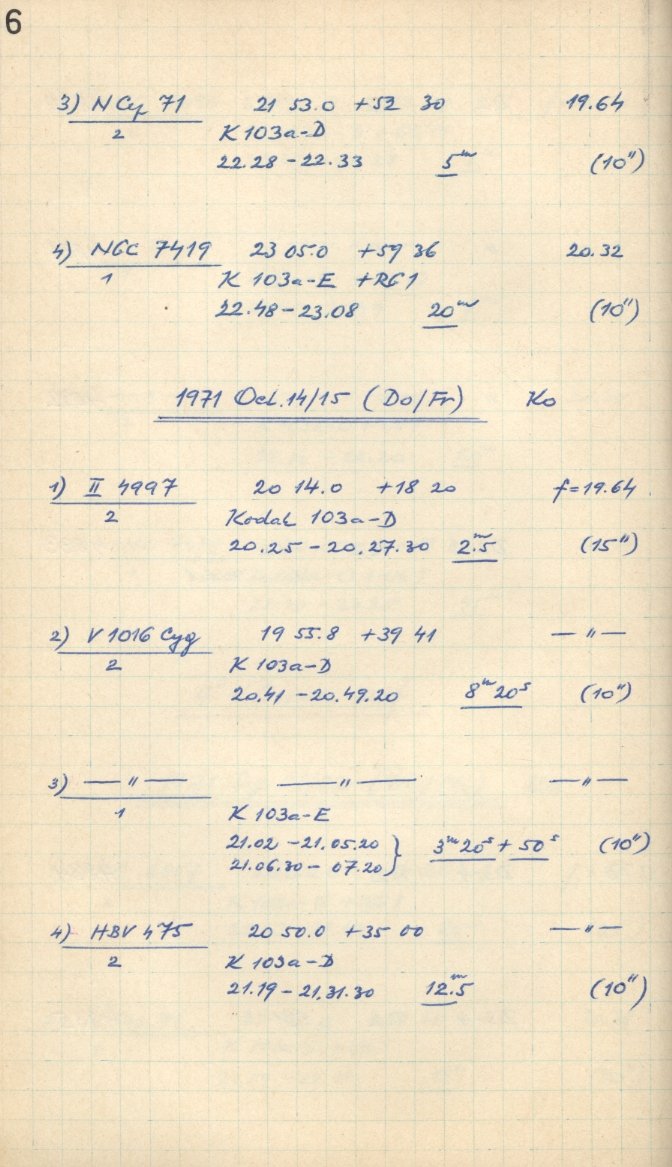 6
3) N Cyg 71 21 53.0 +52 30 19.64
2 K 103a-D
22.28 - 22.33 5ᵐ (10")
4) NGC 7419 23 05.0 +59 36 20.32
1 K 103a-E +RG1
22.48 - 23.08 20ᵐ (10")
1971 Oct. 14/15 (Do/Fr) Ko
1) II 4997 20 14.0 +18 20 f=19.64
2 Kodak 103a-D
20.25 - 20.27.30 2ᵐ.5 (15")
2) V 1016 Cyg 19 55.8 +39 41 — " —
2 K 103a-D
20.41 - 20.49.20 8ᵐ 20ˢ (10")
3) — " — — " — — " —
1 K 103a-E
21.02 - 21.05.20 } 3ᵐ 20ˢ + 50ˢ (10")
21.06.30 - 07.20
4) HBV 475 20 50.0 +35 00 — " —
2 K 103a-D
21.19 - 21.31.30 12ᵐ.5 (10")